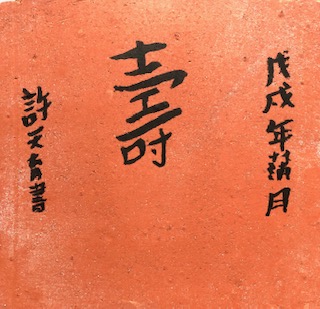 戊戌年月
壽
許天育書